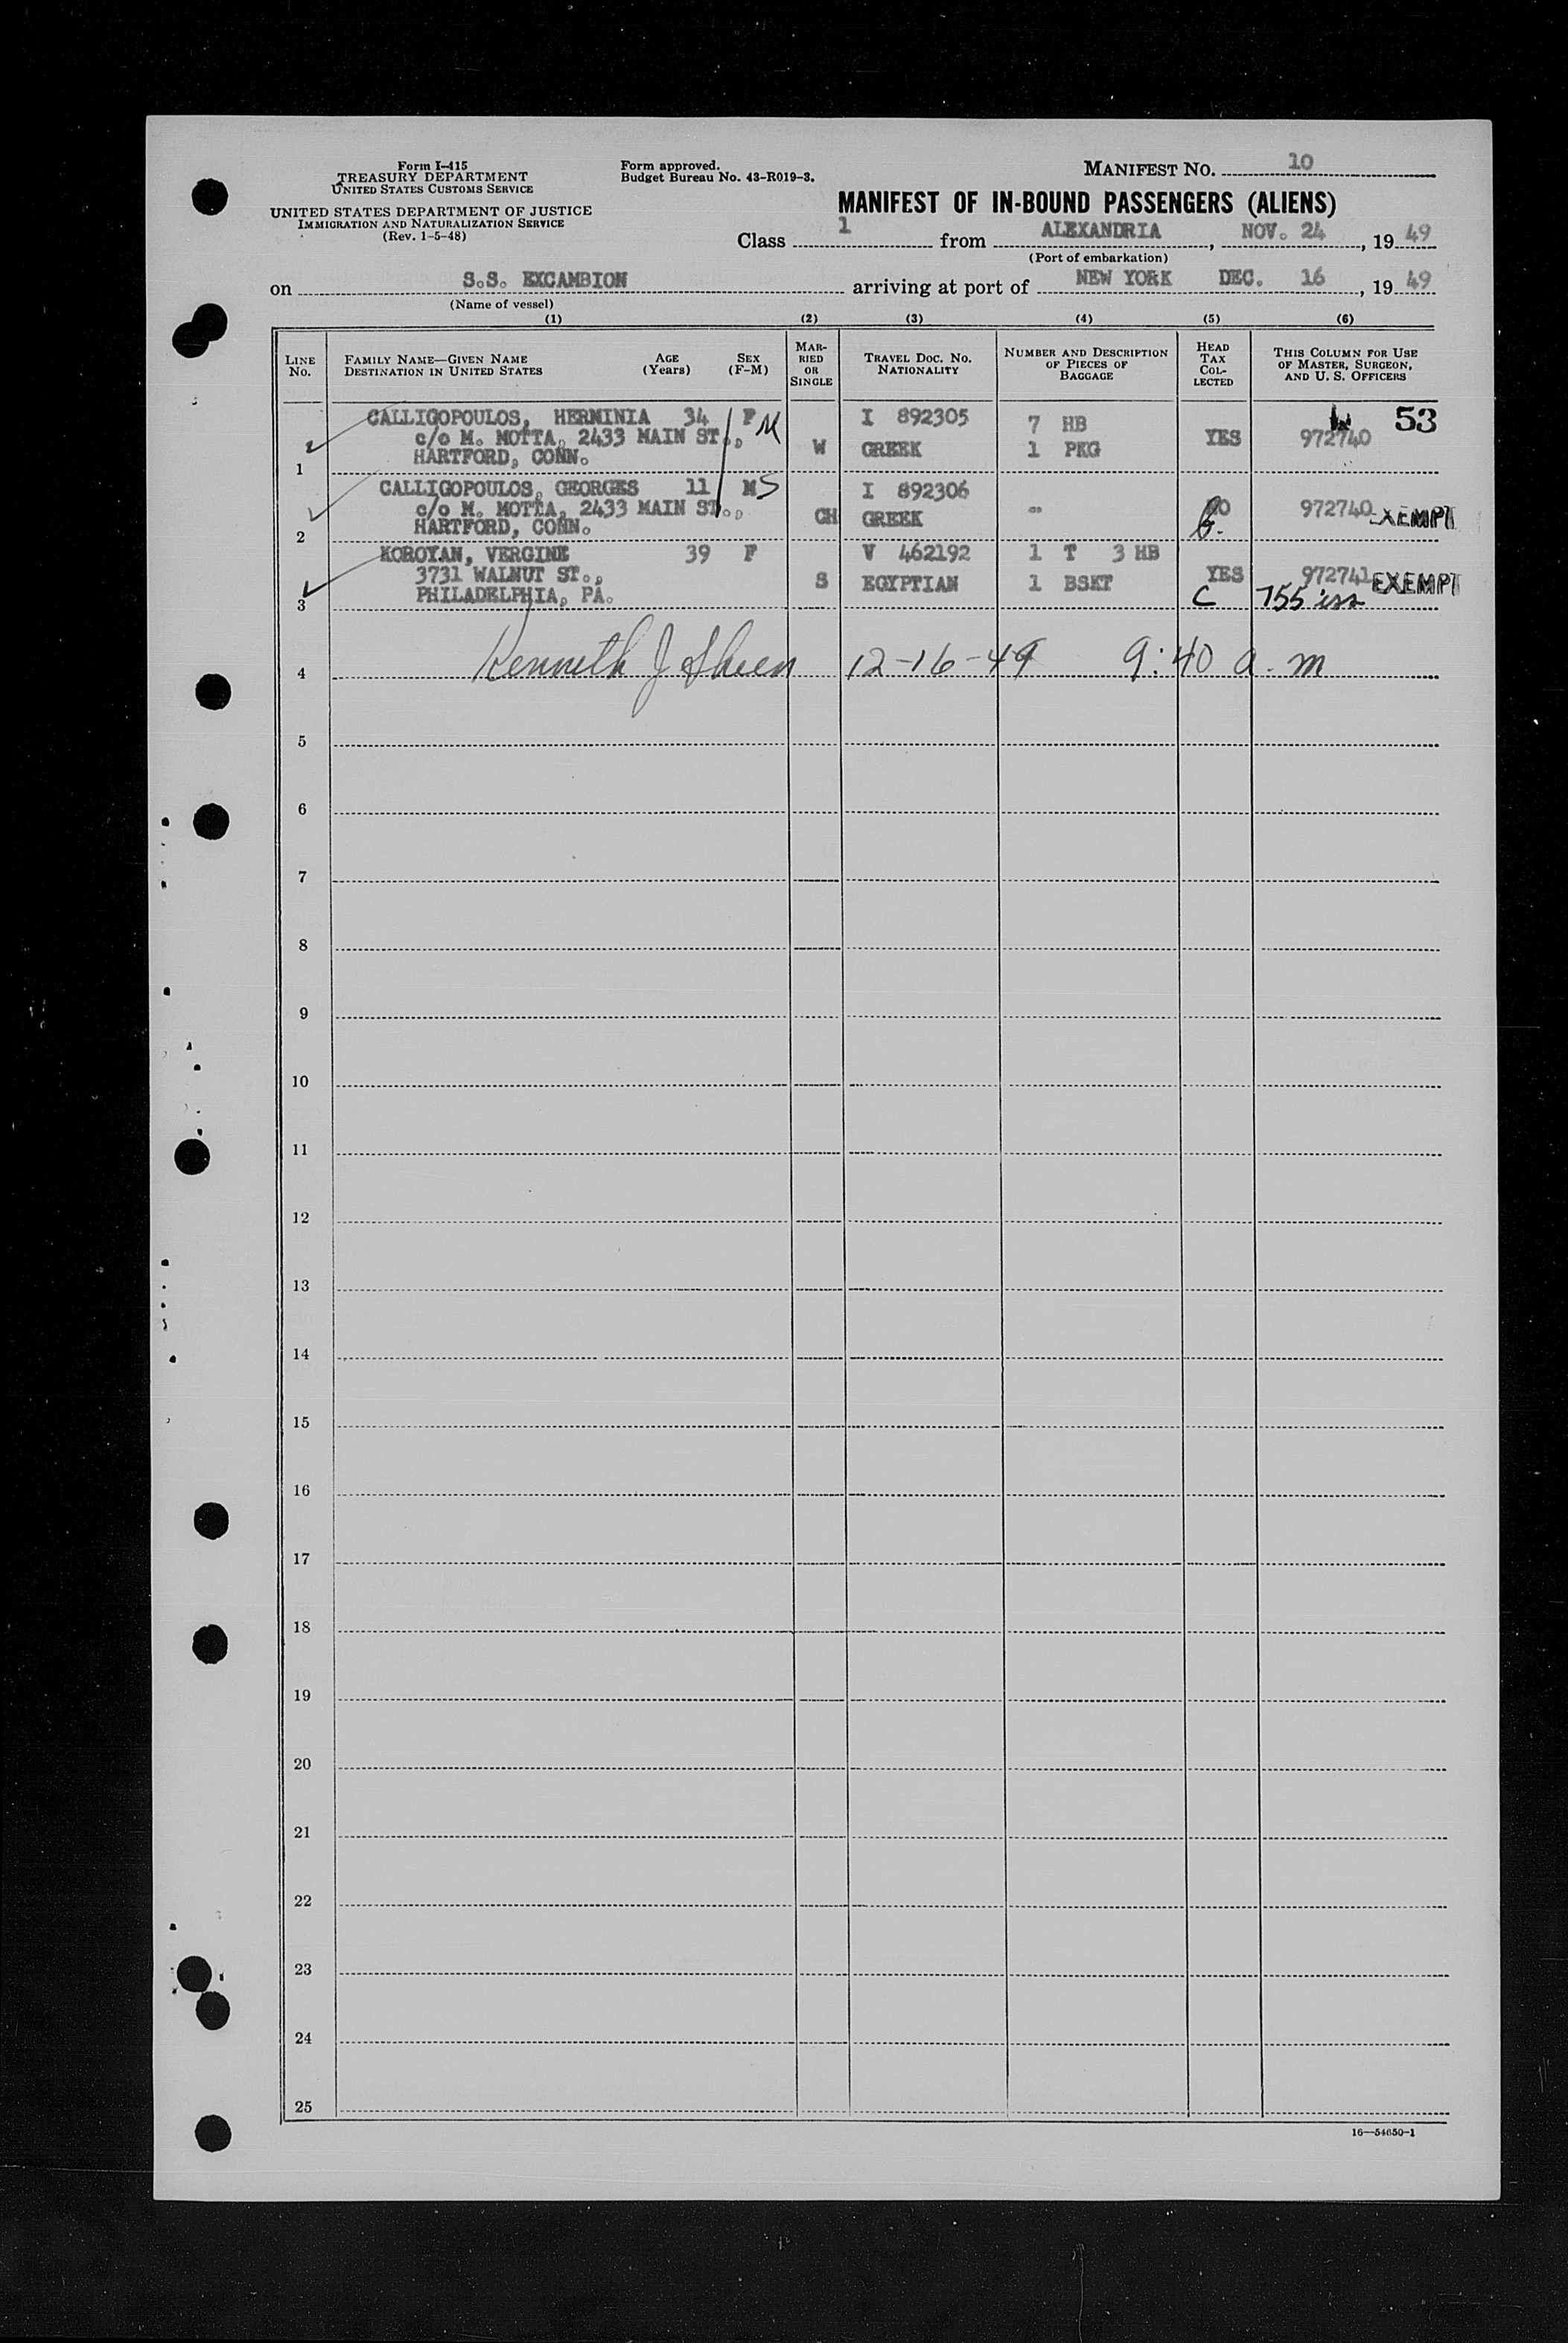 Form I-415
TREASURY DEPARTMENT
UNITED STATES CUSTOMS SERVICE
UNITED STATES DEPARTMENT OF JUSTICE
IMMIGRATION AND NATURALIZATION SERVICE
(Rev. 1-5-48)
Form approved.
Budget Bureau No. 43-R019-3.
MANIFEST NO. 10
MANIFEST OF IN-BOUND PASSENGERS (ALIENS)
Class 1 from ALEXANDRIA, NOV. 24, 1949
(Port of embarkation)
on S.S. EXCAMBION arriving at port of NEW YORK DEC. 16, 1949
(Name of vessel)
(1) (2) (3) (4) (5) (6)
LINE No. FAMILY NAME—GIVEN NAME DESTINATION IN UNITED STATES AGE (Years) SEX (F-M) MARRIED OR SINGLE TRAVEL DOC. NO. NATIONALITY NUMBER AND DESCRIPTION OF PIECES OF BAGGAGE HEAD TAX COLLECTED THIS COLUMN FOR USE OF MASTER, SURGEON, AND U. S. OFFICERS
CALLIGOPOULOS, HERMINIA 34 F M I 892305 7 HB 53
c/o M. MOTTA, 2433 MAIN ST., W GREEK 1 PKG YES 972740
1 HARTFORD, CONN.
CALLIGOPOULOS, GEORGES 11 M S I 892306
c/o M. MOTTA, 2433 MAIN ST., CH GREEK " 972740 EXEMPT
2 HARTFORD, CONN.
KOROYAN, VERGINE 39 F V 462192 1 T 3 HB
3731 WALNUT ST., S EGYPTIAN 1 BSKT YES 972741 EXEMPT
3 PHILADELPHIA, PA. C 755 iss
4 Kenneth J Sheen 12-16-49 9:40 a.m
5
6
7
8
9
10
11
12
13
14
15
16
17
18
19
20
21
22
23
24
25
16—54650-1